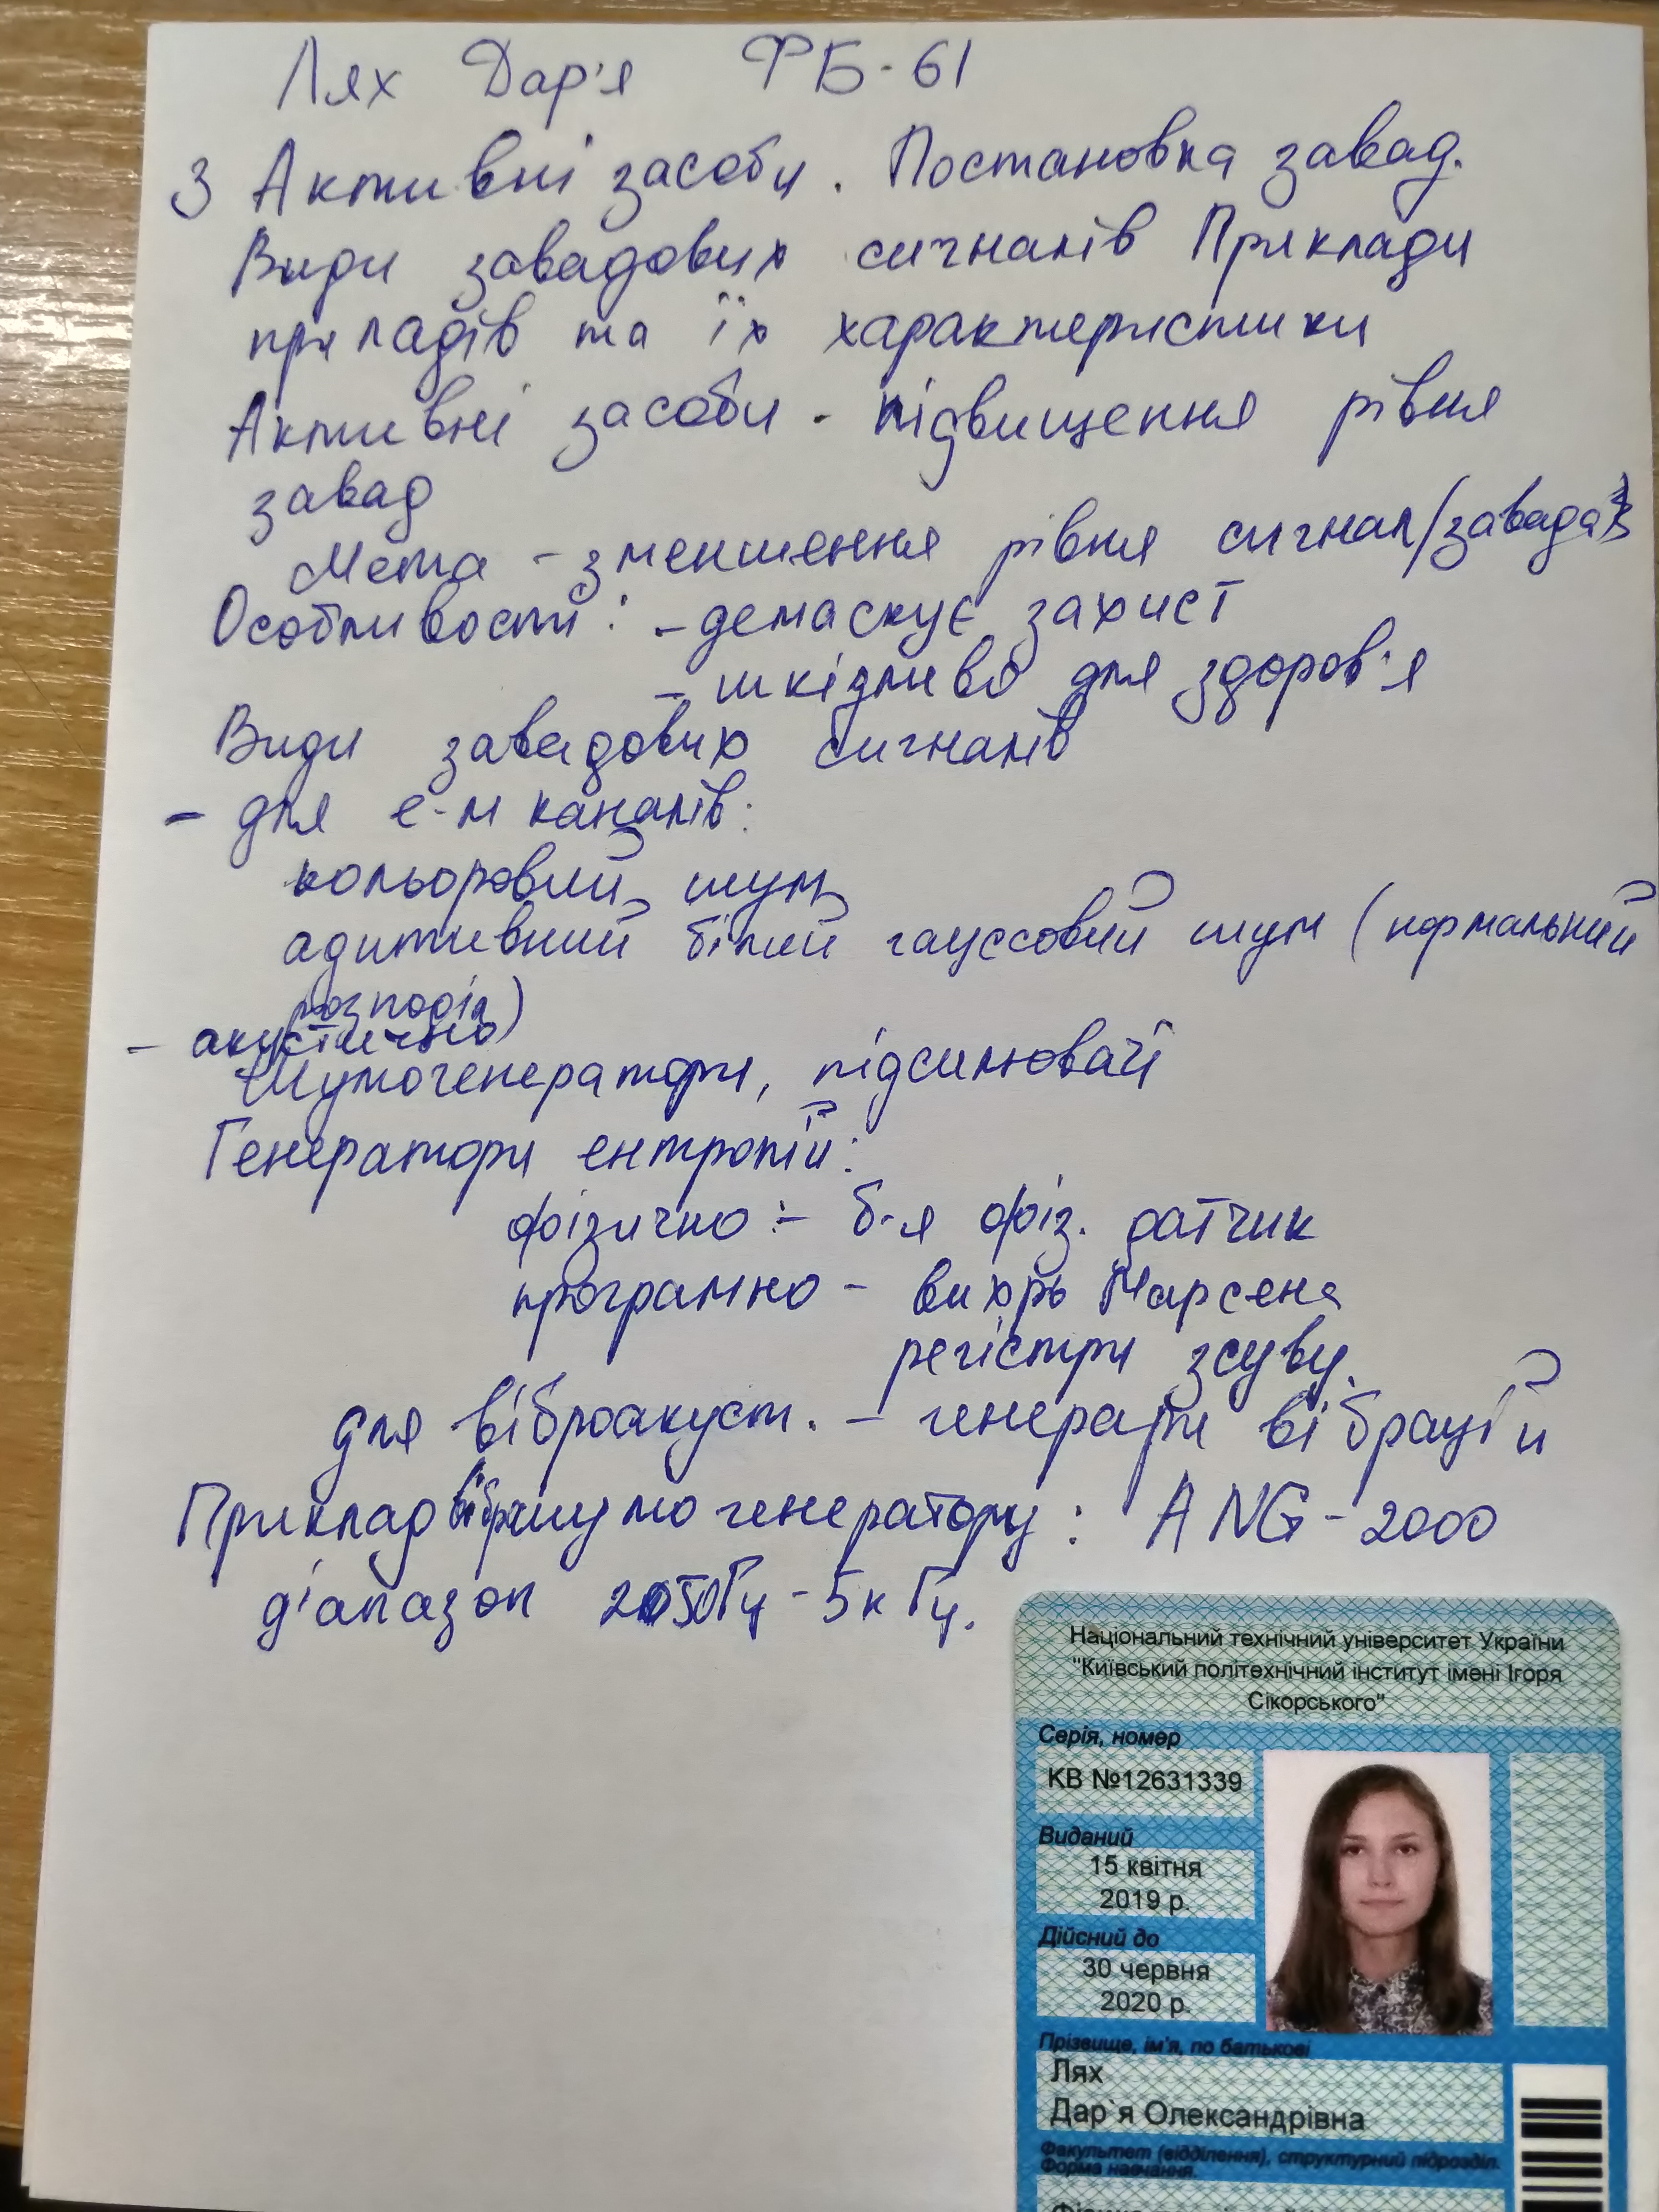 Лях Дар'я ФБ-61
3 Активні засоби. Постановка завад.
Види завадових сигналів Приклади
приладів та їх характеристики
Активні засоби - підвищення рівня
завад
Мета - зменшення рівня сигнал/завада
Особливості: - демаскує захист
- шкідливо для здоров'я
Види завадових сигналів
- для е-м каналів:
кольоровий шум
адитивний білий гауссовий шум (нормальний
розподіл)
- акустично
Шумогенератори, підсилювачі
Генератори ентропій:
фізично :- б-я фіз. датчик
програмно - вихрь Марсена
регістри зсуву.
для віброакуст. - генерати вібрацій
Приклад віброшумогенератору: ANG-2000
діапазон 250Гц - 5кГц.
Національний технічний університет України
"Київський політехнічний інститут імені Ігоря
Сікорського"
Серія, номер
КВ №12631339
Виданий
15 квітня
2019 р.
Дійсний до
30 червня
2020 р.
Прізвище, ім'я, по батькові
Лях
Дар`я Олександрівна
Факультет (відділення), структурний підрозділ.
Форма навчання.